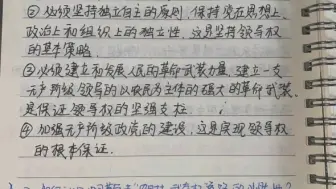 ② 必须坚持独立自主的原则，保持党在思想上、
政治上和组织上的独立性，这是坚持领导权
的基本策略
③ 必须建立和发展人民的革命武装力量，建立一支
无产阶级领导的以农民为主体的强大的革命武装，
是保证领导权的坚强支柱
④ 加强无产阶级政党的建设，这是实现领导权
的根本保证.